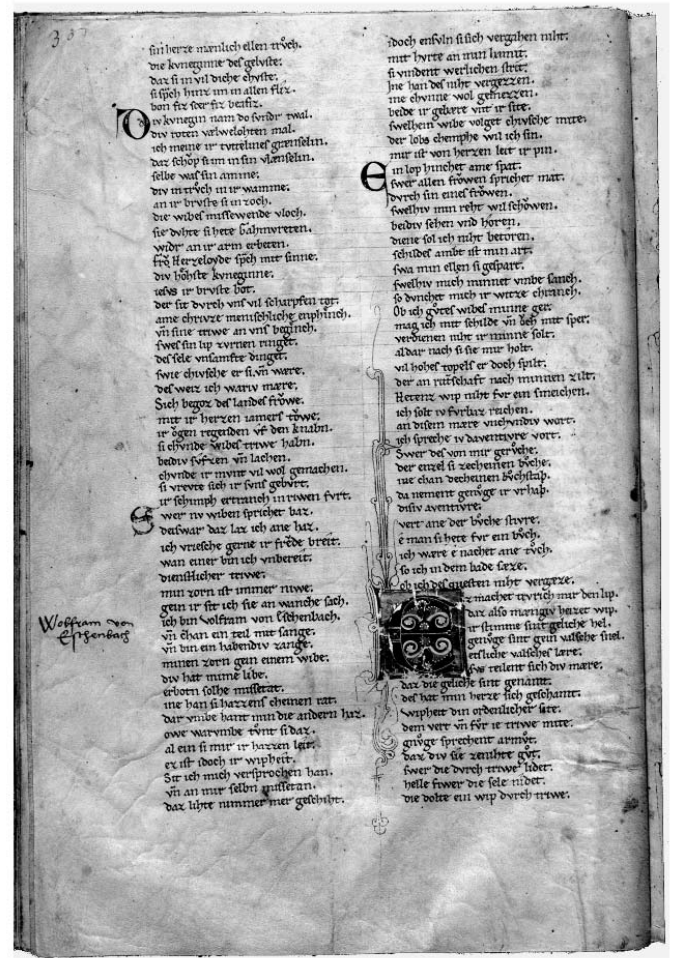 337
sin herze mænlich ellen trv̊ch.
die kvneginne des gelvste.
daz si in vil diche chvste.
si sp̄ch hinz im in allen fliz.
bon fiz scer fiz beafiz.
Div kvnegin nam do svndr twal.
div roten vælwelohten mal.
ich meine ir tvttelines grænselin.
daz schop si im in sin vlænselin.
selbe was sin amme.
div in trv̊ch in ir wamme.
an ir brvste si in zoch.
die wibes missewende vloch.
sie dvhte si hete Gahmvreten.
widr an ir arm erbeten.
frǒ Herzeloyde sp̄ch mit sinne.
div hohste kvneginne.
iesvs ir brvste bot.
der sit dvrch vns vil scharpfen tot.
ame chrivze mennschliche enphinch.
vn̄ sine triwe an vns beginch.
swes sin lip zvrnen ringet.
des sele vnsamfte dinget.
swie chivsche er si vn̄ wære.
des weiz ich wariv mære.
Sich begoz des landes frǒwe.
mit ir herzen iamers tǒwe.
ir ǒgen regenden vf den knabn.
si chvnde wibes triwe habn.
beidiv svfzen vn̄ lachen.
chvnde ir mvnt vil wol gemachen.
si vrevte sich ir svns gebvrt.
ir schimph ertranch in riwen fvrt.
Swer nv wiben sprichet baz.
deiswar daz laz ich ane haz.
ich vriesche gerne ir frǒde breit.
wan einer bin ich vnbereit.
dienstlicher triwe.
min zorn ist immer niwe.
gein ir sit ich sie an wanche sach.
ich bin volfram von Eschenbach.
vn̄ chan ein teil mit sange.
vn̄ bin ein habendiv zange.
minen zorn gein einem wibe.
div hat mime libe.
erboten solhe missetat.
ine han si hazzens cheinen rat.
dar vmbe hant min die andern haz.
owe warvmbe tv̊nt si daz.
al ein si mir ir hazzen leit.
ez ist idoch ir wipheit.
Sit ich mich versprochen han.
vn̄ an mir selbn missetan.
daz lihte nimmer mer geschiht.
Wolfram von
Eschenbach
idoch ensvln si sich vergahen niht.
mit hvrte an min hamit.
si vindent werlichen strit.
Ine han des niht vergezzen.
ine chvnne wol gemezzen.
beide ir gebære vnt ir site.
swelhem wibe volget chivsche mite.
der lobs chemphe wil ich sin.
mir ist von herzen leit ir pin.
Ein lop hinchet ame spat.
swer allen frǒwen sprichet mat.
dvrch sin eines frǒwen.
swelhiv min reht wil schǒwen.
beidiv sehen vnd horen.
diene sol ich niht betoren.
schildes ambt ist min art.
swa min ellen si gespart.
swelhiv mich minnet vmbe sanch.
so dvnchet mich ir witze chranch.
Ob ich gv̊tes wibes minne ger.
mag ich mit schilde vn̄ ǒch mit sper.
verdienen niht ir minne solt.
aldar nach si sie mir holt.
vil hohes topels er doch spilt.
der an ritschaft nach minnen zilt.
Hetenz wip niht fvr ein smeichen.
ich solt iv fvrbaz reichen.
an disem mære vnchvndiv wort.
ich spreche iv daventivre vort.
Swer des von mir gerv̊che.
der enzel si zecheinem bv̊che.
ine chan decheinen bv̊chstap.
da nement genv̊ge ir vrhap.
disiv aventivre.
vert ane der bv̊che stivre.
e man si hete fvr ein bv̊ch.
ich wære e nachet ane tv̊ch.
so ich in dem bade sæze.
ob ich des questen niht vergæze.
Ez machet trvrich mir den lip.
daz also mænigiv heizet wip.
ir stimme sint geliche hel.
genv̊ge sint gein valsche snel.
etsliche valsches lære.
svs teilent sich div mære.
daz die geliche sint genant.
des hat min herze sich geschamt.
wipheit din ordenlicher site.
dem vert vn̄ fv̊r ie triwe mite.
gnv̊ge sprechent armv̊t.
daz div sie zenihte gv̊t.
swer die dvrch triwe lidet.
helle fiwer die sele midet.
die dolte ein wip dvrch triwe.